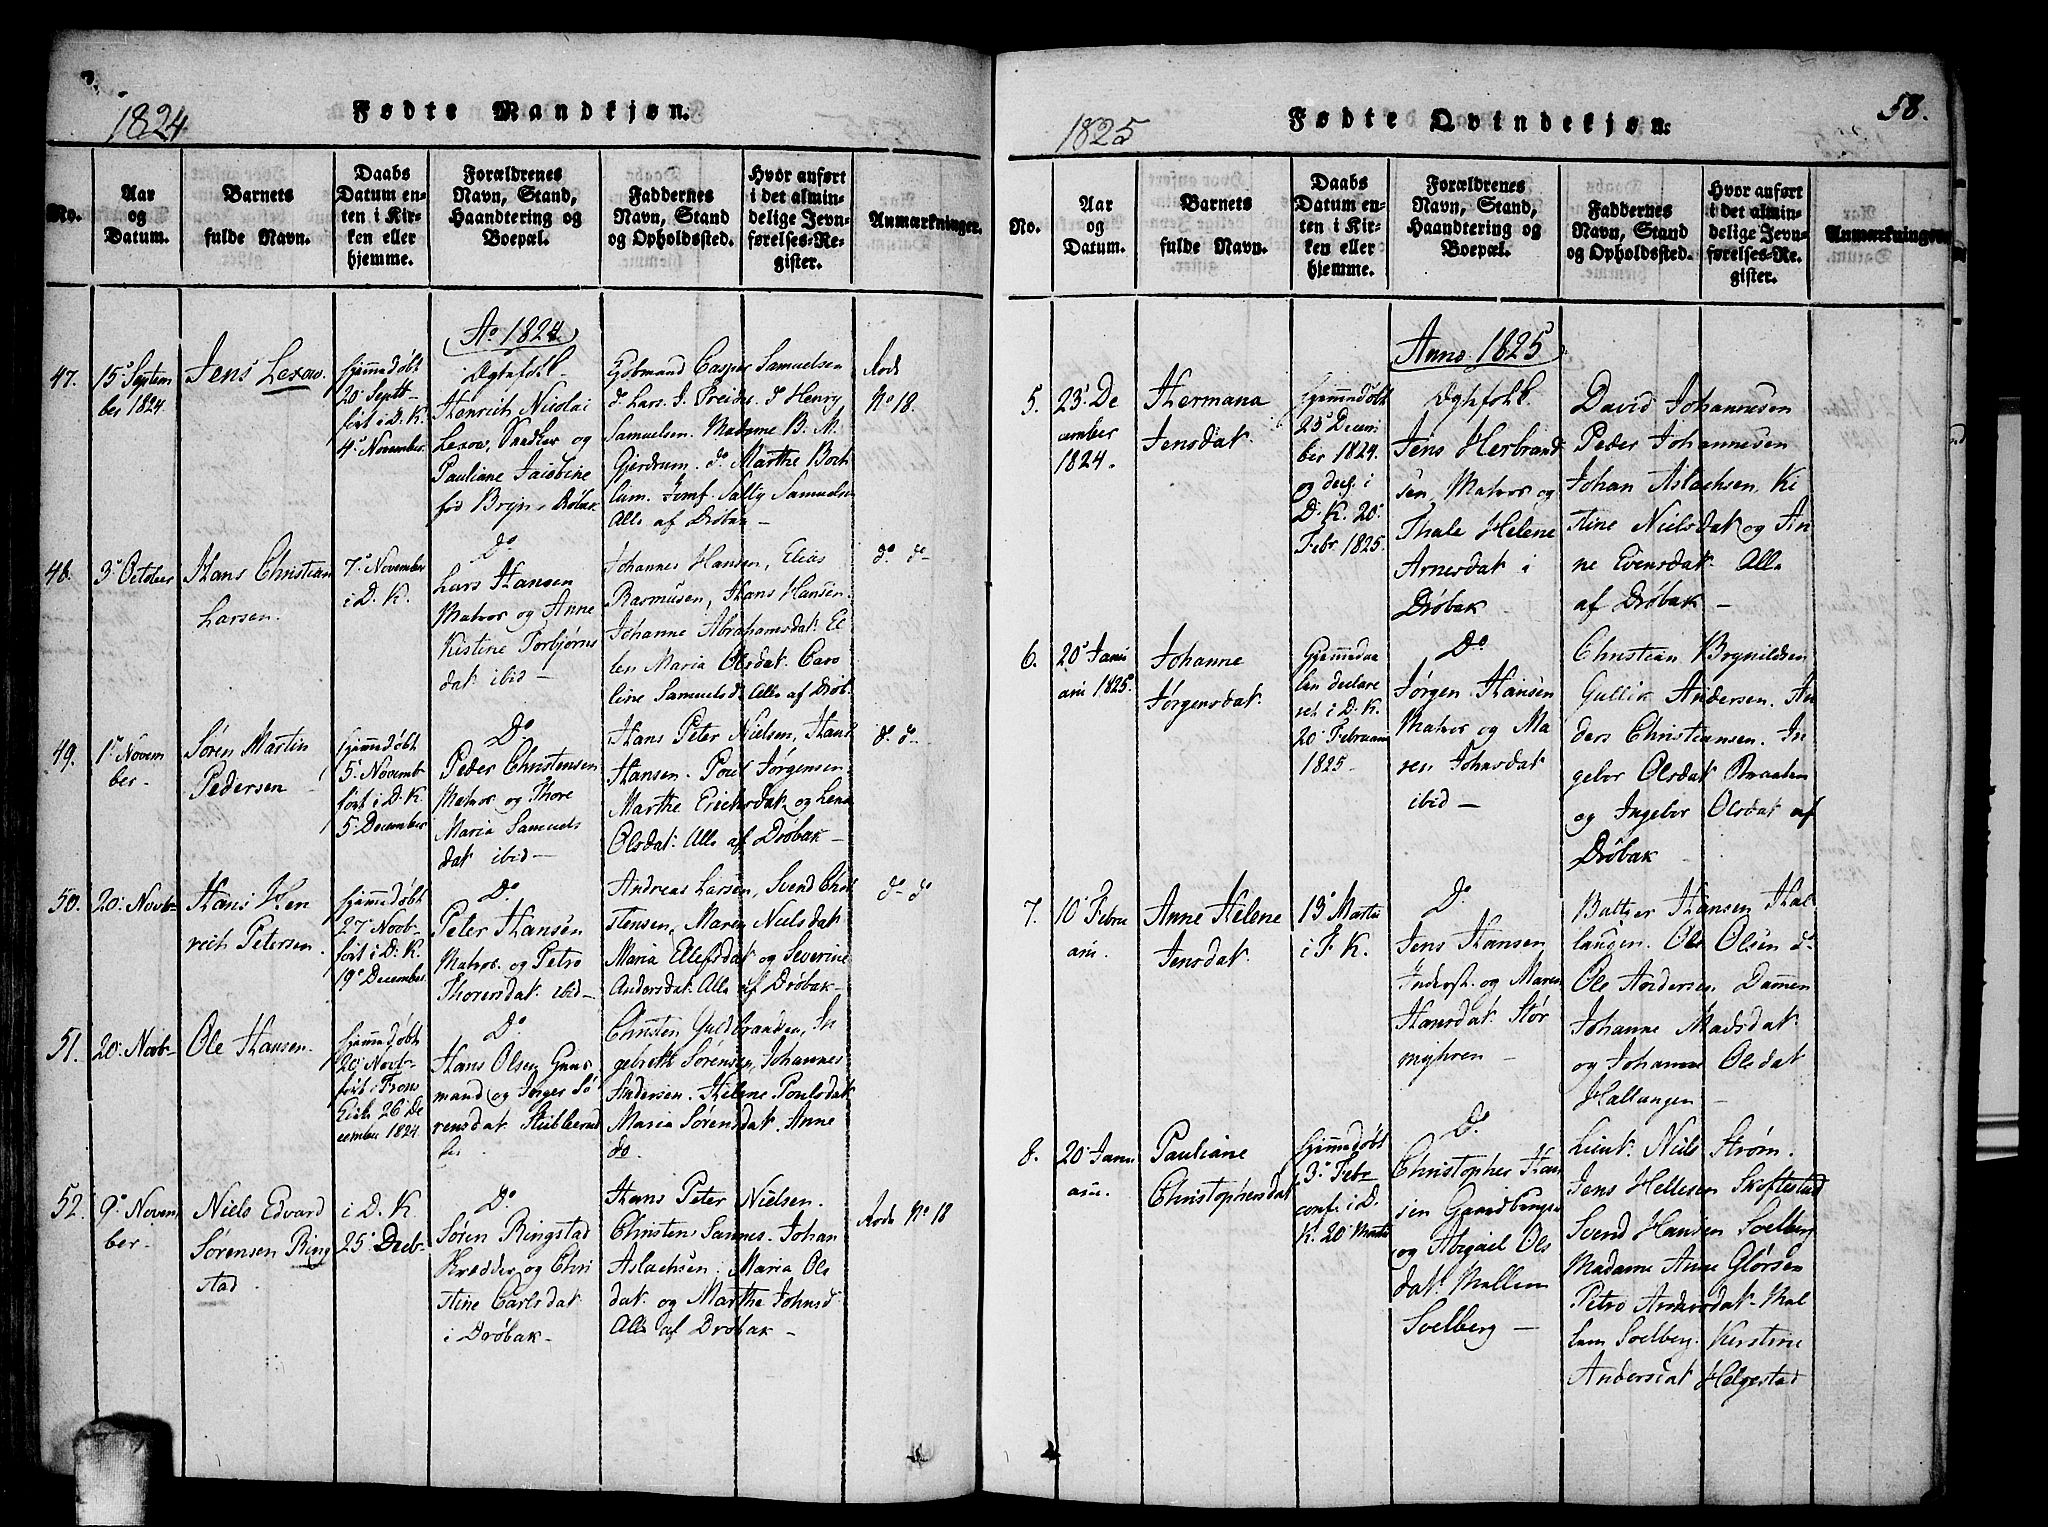 1824
Fødte Mandkjøn.
No.
Aar
og
Datum.
Barnets
fulde Navn.
Daabs
Datum en-
ten i Kir-
ken eller
hjemme.
Forældrenes
Navn, Stand,
Haandtering og
Boepæl.
Faddernes
Navn, Stand
og Opholdssted.
Hvor anført
i det almin-
delige Jevn-
førelses-Re-
gister.
Anmærkninger.
Ao 1824
47.
15 Septem
ber 1824.
Jens Lexow.
hjemmedøbt
20 Septb-
ført i D. K.
4 November.
Ægtefolk.
Henrich Nicolai
Lexow, Snedker og
Pauliane Jacobine
fød Bryn, Drøbak
Kjøbmand Casper Samuelsen
do Lars J. Preidus. do Henry
Samuelsen. Madame B. M.
Gjerdrum. do Marthe Boch
lum. Jomf. Sally Samuelsen
Alle af Drøbak -
Rode
No 18.
48.
3 October
Hans Christian
Larsen.
7 November
i D. K.
Do
Lars Hansen
Matros og Anne
Kistine Torbjørns
dat. ibid -
Johannes Hansen, Elias
Rasmusen, Hans Hansen
Johanne Abrahamsdat. El
len Maria Olsdat. Caro
line Samuelsd. Alle af Drøb.
do do-
49.
1 Novem
ber.
Søren Martin
Pedersen
hjemmedøbt
5 Novembr
ført i D. K.
5 December
Do
Peder Christensen
Matros og Thore
Maria Samuels
dat ibid -
Hans Peter Nielsen, Hans
Hansen. Poul Jørgensen.
Marthe Erichsdat. og Lena
Olsdat. Alle af Drøbak -
do do-
50.
20 Novbr-
Hans Hen
rich Petersen.
hjemmedøbt
27 Novbr-
ført i D. K.
19 December.
Do
Peter Hansen
Matros. og Petro
Thorersdat. ibid -
Andreas Larsen, Svend Chri
stensen, Maren Nielsdat
Maria Ellefsdat og Severine
Andersdat. Alle af Drøbak -
do do
51.
20 Novbr-
Ole Hansen.
hjemmedøbt
20 Novbr-
ført i Frons
Kirke 26 De
cember 1824
Do
Hans Olsen Huus
mand og Inger Sø
rensdat. Stubberud
Christen Guldbrandsen, In
gebreth Sørensen, Johannes
Andersen. Helene Poulsdat
Maria Sørensdat. Anne
do.
52.
9 Novem
ber -
Niels Edvard
Sørensen Ring
stad.
i D. K.
25 Decb-
Do
Søren Ringstad
Kræmmer og Chri
stine Carlsdat
i Drøbak -
Hans Peter Nielsen.
Christen Sannes. Johan
Aslachsen. Maria Ols
dat. og Marthe Johnsd
Alle af Drøbak -
Rode No 18
1825
Fødte Qvindekjøn.
58.
No.
Aar
og
Datum.
Barnets
fulde Navn.
Daabs
Datum en-
ten i Kir-
ken eller
hjemme.
Forældrenes
Navn, Stand,
Haandtering og
Boepæl.
Faddernes
Navn, Stand
og Opholdssted.
Hvor anført
i det almin-
delige Jevn-
førelses-Re-
gister.
Anmærkninger
Anno 1825
5.
23 De
cember
1824.
Hermana
Jensdat.
hjemmedøbt
25 Decem
ber 1824.
og decl. i
D. K. 20
Febr 1825.
Ægtefolk.
Jens Herbrand
sen, Matros og
Thale Helene
Arnesdat i
Drøbak.
David Johannesen
Peder Johannesen
Johan Aslachsen. Ki
stine Nielsdat og An
ne Evensdat. Alle
af Drøbak -
6.
20 Janu
arii 1825.
Johanne
Jørgensdat.
Hjemmedaa
ben declare
ret i D. K.
20 Februarii
1825 -
Do
Jørgen Hansen
Matros og Ma
ren Johnsdat
ibid -
Christian Brynildsen
Gullik Andersen. An
ders Christiansen. In
gebor Olsdat Braaten
og Ingebor Olsdat af
Drøbak -
7.
10 Febru
arii.
Anne Helene
Jensdat.
13 Martii
i F. K.
Do
Jens Hansen
Inderst. og Maren
Hansdat. Stor
myhren -
Baltzer Hansen Hal
langen. Ole Olsen do
Ole Andersen Dammen
Johanne Madsdat.
og Johanne Olsdat
Hallangen -
8.
20 Janu
arii.
Pauliane
Christophersdat
hjemmedøbt
3 Febr-
conf. i D.
K. 20 Martii
Do
Christopher Han
sen Gaardbruger
og Abigael Ols
dat. Mellem
Soelberg -
Lieut. Niels Strøm.
Jens Hellesen Skoftestad
Svend Hansen Soelberg
Madame Anne Glørsen
Petro Andersdat. Mel
lem Soelberg. Kirstine
Andersdat Helgestad